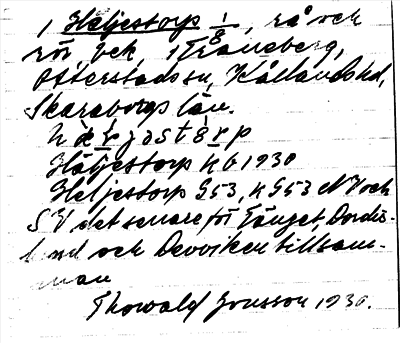 1 Häljestorp 1/8, rå och
rör, bek, i Traneberg,
Otterstads sn, Kållands hd,
Skaraborgs län.
hàljastårp
Häljestorp kb 1930
Heljestorp G53, K G53 NV och
SV det senare för Tånget, Dordis-
lund och Devviken tillsam-
man
Thorvald Jonsson 1930.